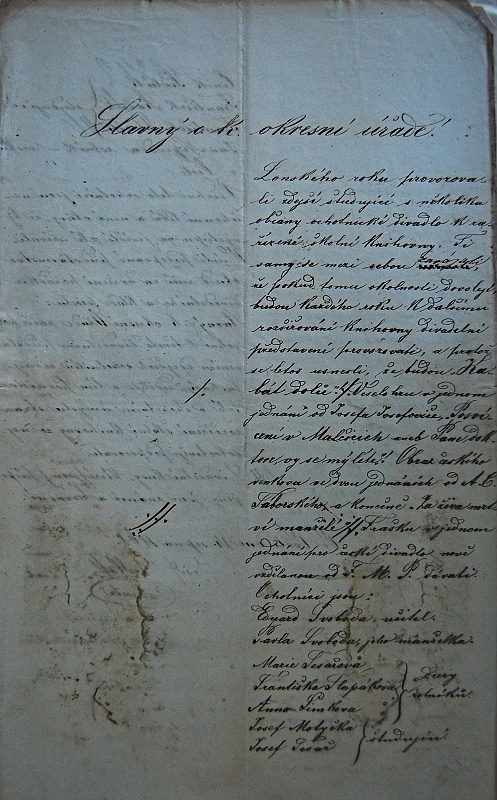 Slavný c. k. okresní úřade!
Lonského roku provozova-
li zdejší študující s několika
občany ochotnické divadlo k za-
řízení školní knihovny. Ti
samý se mezi sebou
že pokud tomu okolnosti dovolejí
budou každého roku k dalšímu
rozšiřování knihovny divadelní
představení provozovati, a protož
se letos usnesli, že budou „Ka-
bát dolů!“ Veselohru v jednom
jednání od Josefa Josefoviče, Posví-
cení v Malčicích aneb Pane dok-
tor, vy se mýlíte! Obraz českého
venkova ve dvou jednáních od
Táborského, a konečně Za živa mrt-
ví manželé Frašku v jednom
jednání pro české divadlo nově
vzdělanou od F. M. P. dávati.
Ochotníci jsou:
Eduard Svoboda, učitel.
Pavla Svoboda, jeho manželka.
Marie Tesařová
Františka Šlapáková
Anna Šimková
dcery
rolníků
Josef Motyčka
Josef Tesař
študující